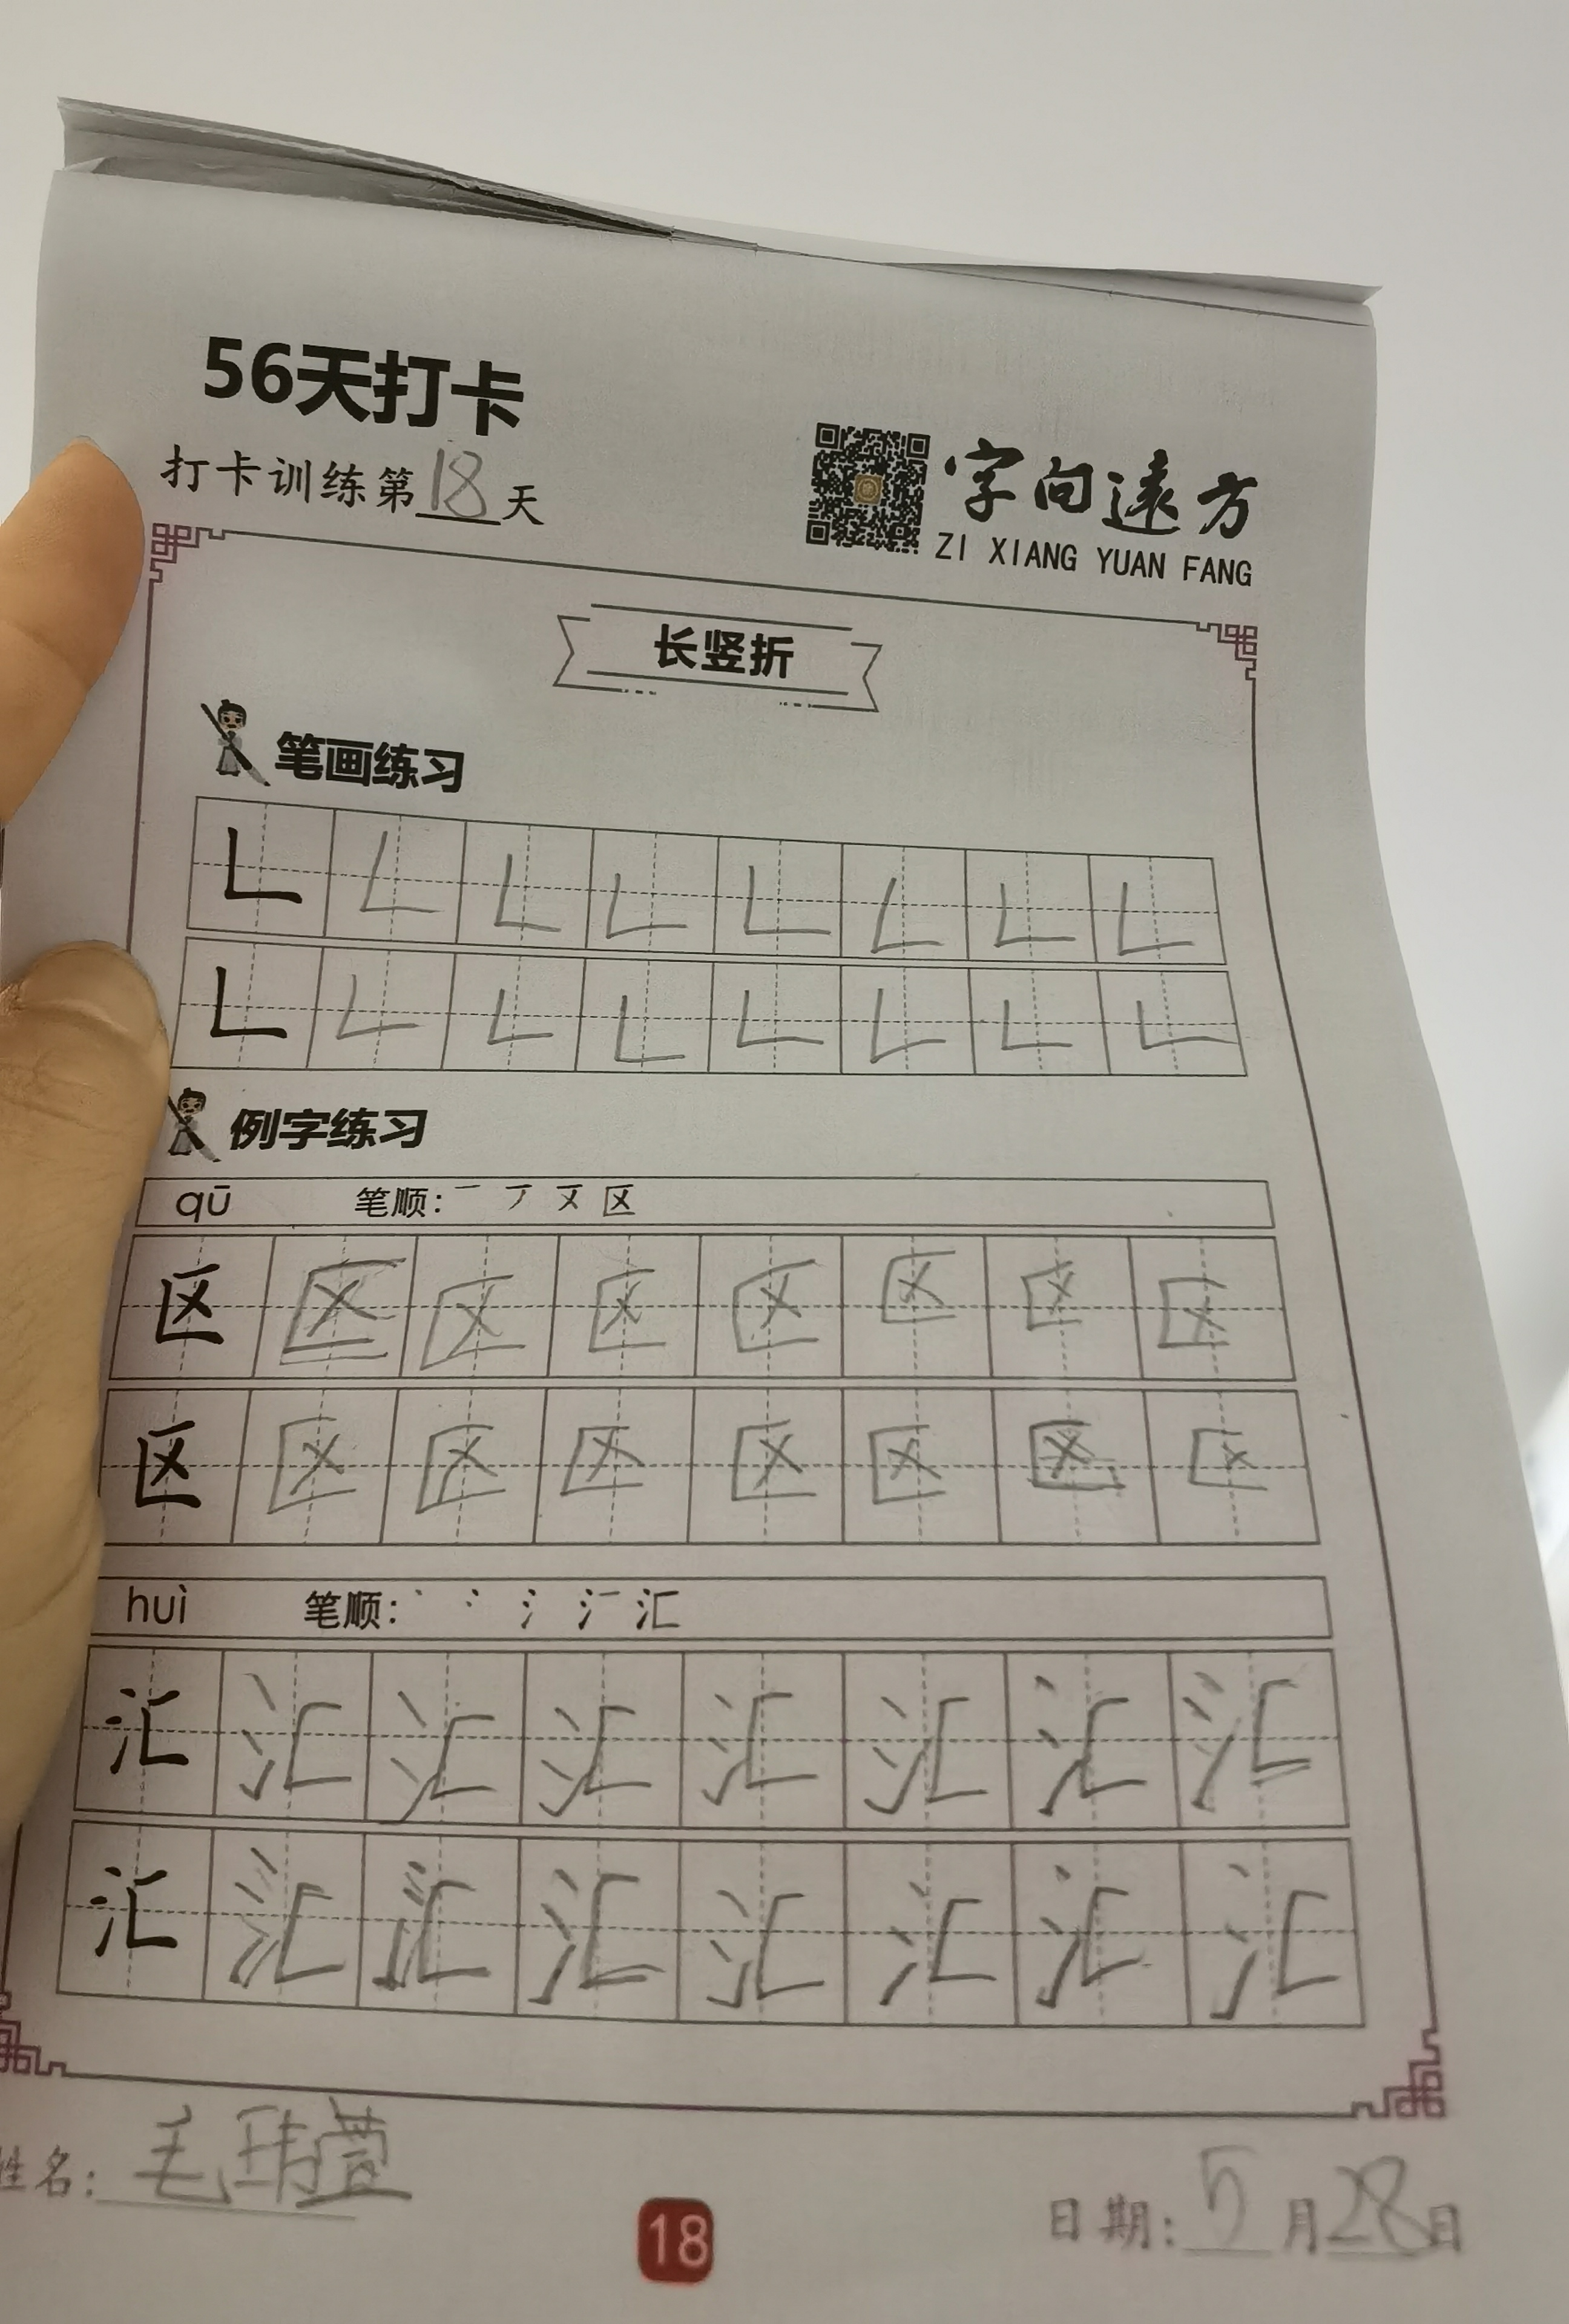 56天打卡
打卡训练第18天
字向遠方
ZI XIANG YUAN FANG
长竖折
笔画练习
𠃊 𠃊 𠃊 𠃊 𠃊 𠃊 𠃊 𠃊
𠃊 𠃊 𠃊 𠃊 𠃊 𠃊 𠃊 𠃊
例字练习
qū 笔顺: 区
区 区 区 区 区 区 区 区
区 区 区 区 区 区 区 区
huì 笔顺: 丶 冫 氵 汇
汇 汇 汇 汇 汇 汇 汇 汇
汇 汇 汇 汇 汇 汇 汇 汇
姓名: 毛玮萱
18
日期: 5月28日